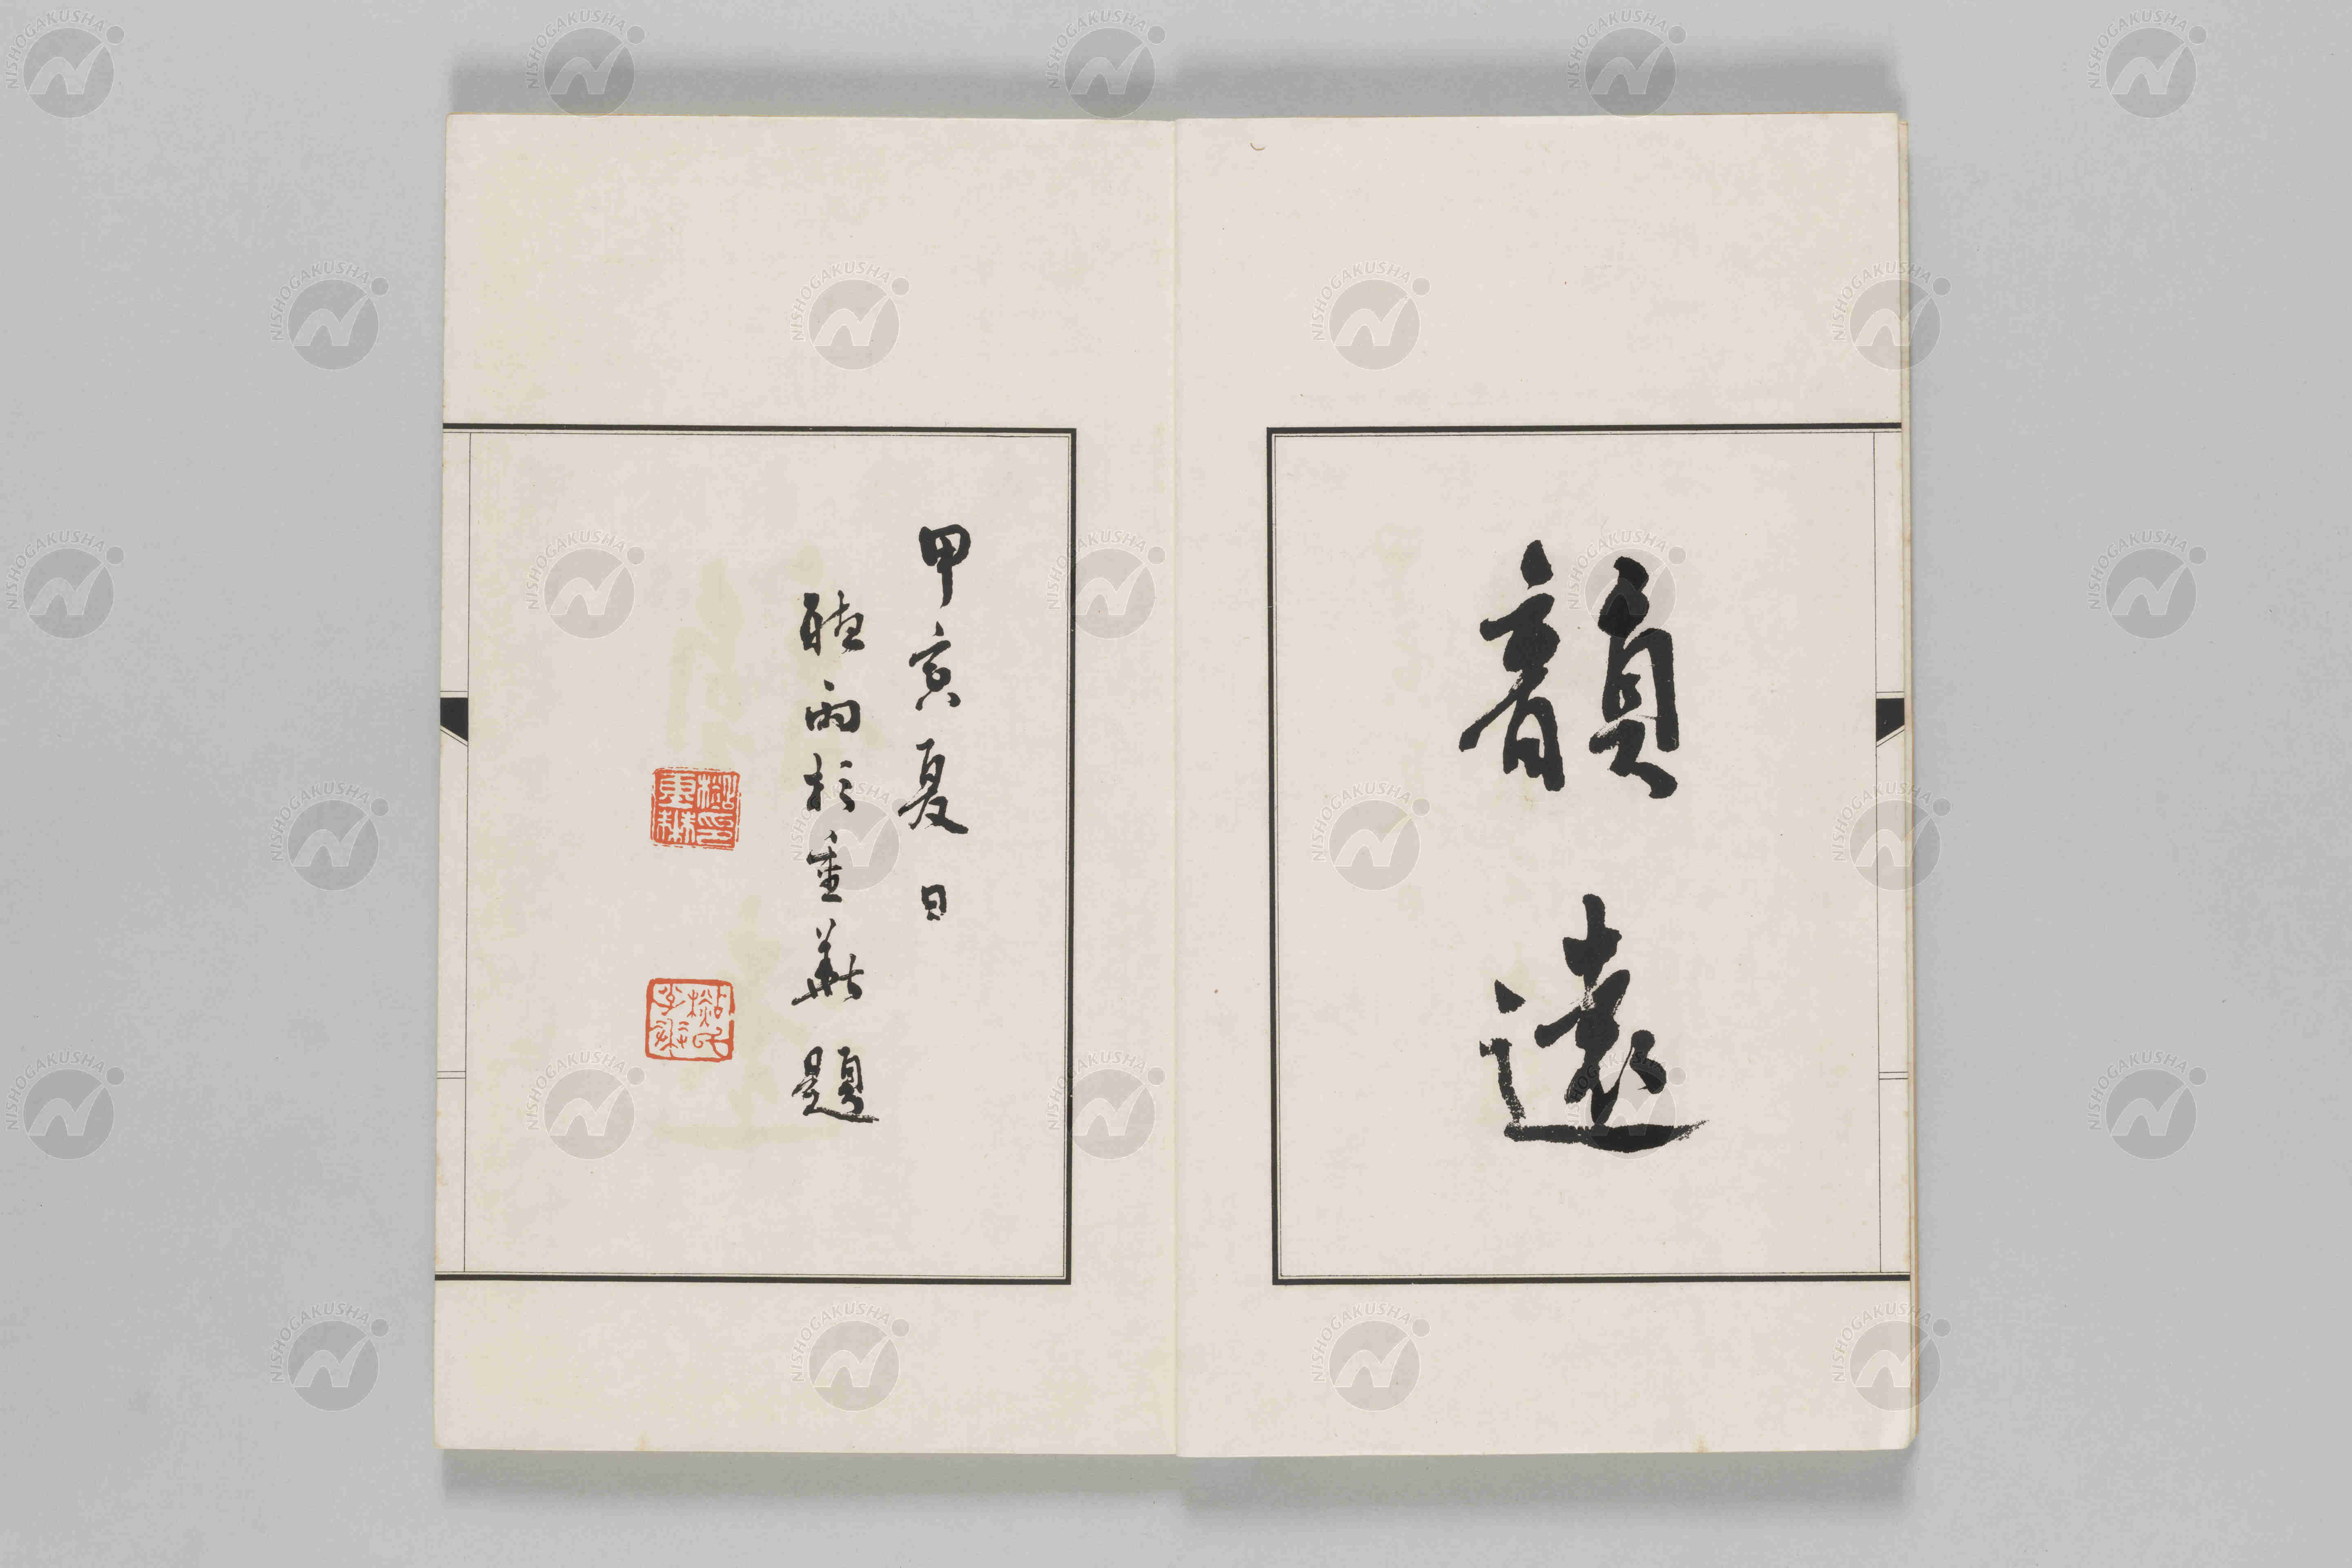 韻遠
甲寅夏日
聽雨杉重華題
NISHOGAKUSHA